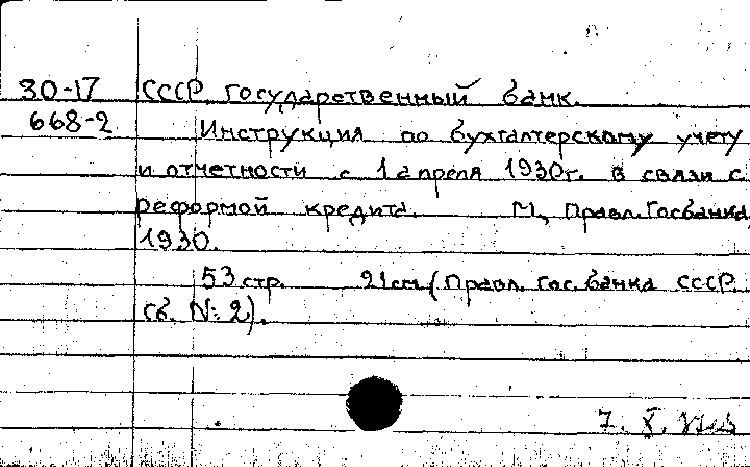 30-17 СССР. Государственный банк.
668-2 Инструкция по бухгалтерскому учету
и отчетности с 1 апреля 1930г. в связи с
реформой кредита. М., Правл. Госбанка,
1930.
53 стр. 21 см (Правл. Гос. банка СССР.
Сб. №: 2).
7. X.